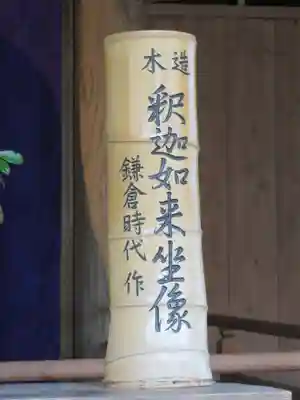 木造
釈迦如来坐像
鎌倉時代作